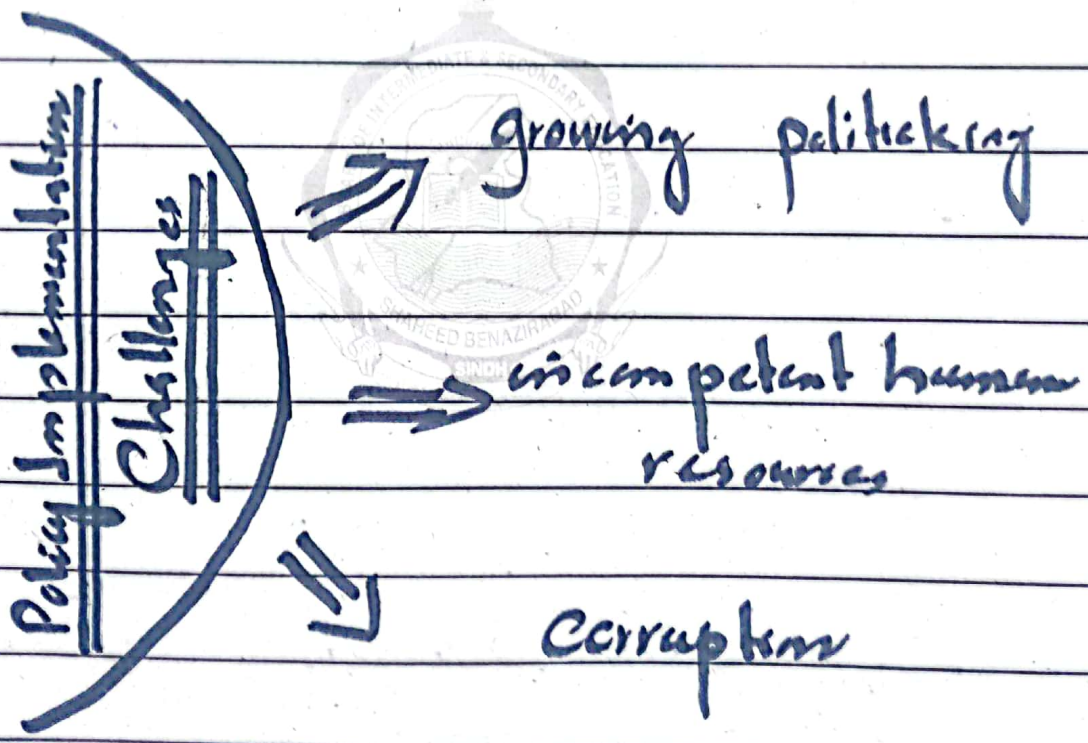 Policy Implementation
Challenges
growing politicking
incompetent human
resources
Corruption
INTERMEDIATE & SECONDARY EDUCATION
SHAHEED BENAZIRABAD
SINDH